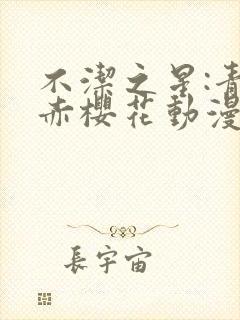 不潔之星:青
赤櫻花動漫
長宇宙